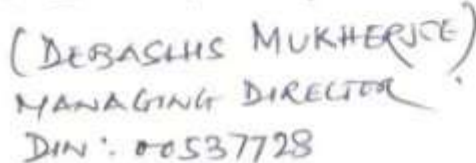 (DEBASHIS MUKHERJEE)
MANAGING DIRECTOR.
DIN: 00537728